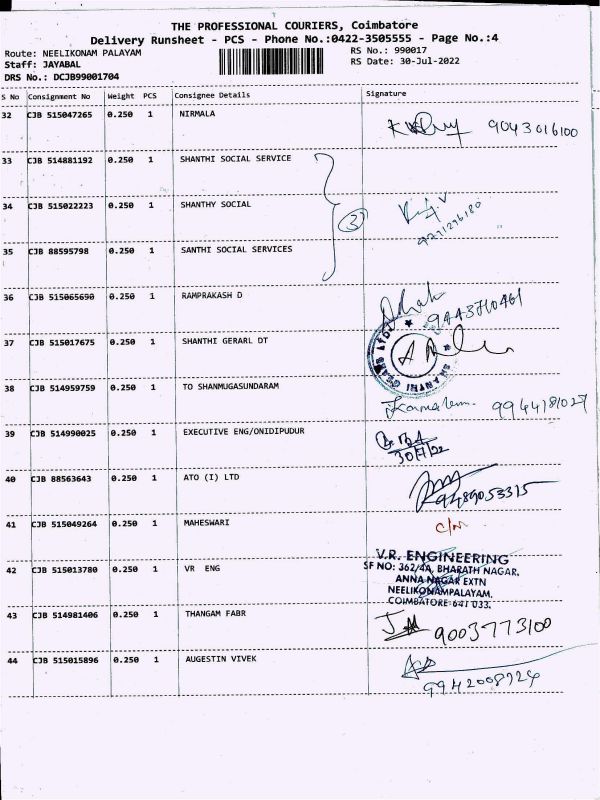 THE PROFESSIONAL COURIERS, Coimbatore
Delivery Runsheet - PCS - Phone No.:0422-3505555 - Page No.:4
Route: NEELIKONAM PALAYAM
RS No.: 990017
Staff: JAYABAL
RS Date: 30-Jul-2022
DRS No.: DCJB99001704
S No Consignment No Weight PCS Consignee Details Signature
32 CJB 515047265 0.250 1 NIRMALA 9043016100
33 CJB 514881192 0.250 1 SHANTHI SOCIAL SERVICE
34 CJB 515022223 0.250 1 SHANTHY SOCIAL
3
35 CJB 88595798 0.250 1 SANTHI SOCIAL SERVICES
36 CJB 515065690 0.250 1 RAMPRAKASH D
9443710461
37 CJB 515017675 0.250 1 SHANTHI GERARL DT
38 CJB 514959759 0.250 1 TO SHANMUGASUNDARAM
9944181027
39 CJB 514990025 0.250 1 EXECUTIVE ENG/ONIDIPUDUR
30/7/22
40 CJB 88563643 0.250 1 ATO (I) LTD
9489053315
41 CJB 515049264 0.250 1 MAHESWARI
V.R. ENGINEERING
42 CJB 515013780 0.250 1 VR ENG
SF NO: 362/4A, BHARATH NAGAR,
ANNA NAGAR EXTN
NEELIKONAMPALAYAM,
COIMBATORE-641 033.
43 CJB 514981406 0.250 1 THANGAM FABR
9003773100
44 CJB 515015896 0.250 1 AUGESTIN VIVEK
9942008724